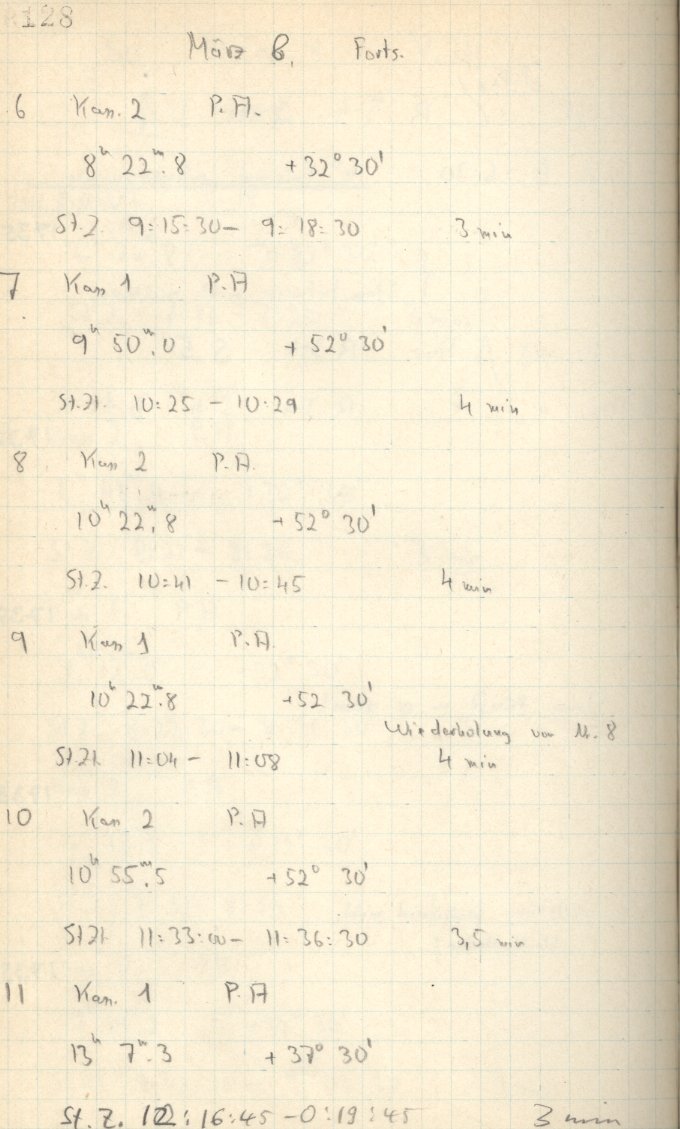 128
März 6, Forts.
6 Kas. 2 P.A.
8ʰ 22ᵐ.8 +32° 30'
St.Z. 9:15:30 – 9:18:30 3 min
7 Kas 1 P.A
9ʰ 50ᵐ.0 +52° 30'
St.Zt. 10:25 – 10:29 4 min
8 Kas 2 P.A.
10ʰ 22ᵐ.8 +52° 30'
St.Z. 10:41 – 10:45 4 min
9 Kas 1 P.A.
10ʰ 22ᵐ.8 +52 30'
Wiederholung von Nr. 8
St.Zt. 11:04 – 11:08 4 min
10 Kas 2 P.A
10ʰ 55ᵐ.5 +52° 30'
St.Zt. 11:33:00 – 11:36:30 3,5 min
11 Kas. 1 P.A
13ʰ 7ᵐ.3 +37° 30'
St. Z. 12:16:45 – 0:19:45 3 min